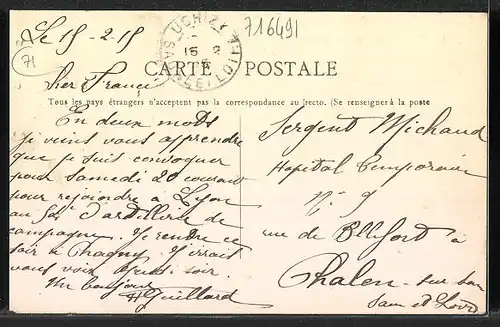 Le 15-2-15
716491
71
UCHIZY
SAÔNE ET LOIRE
15 2
15
CARTE POSTALE
Tous les pays étrangers n'acceptent pas la correspondance au recto. (Se renseigner à la poste
Cher Francé
En deux mots
je viens vous apprendre
que je suit convoquer
pour Samedi 20 courant
pour rejoindre à Lyon
au d'artillerie de
campagne. Je rentre ce
soir à Chagny. J'irait
vous voir soir.
Un bonjour
Guillard
Sergent Michaud
Hopital Temporaire
N° 9
rue de Belfort à
Chalon-sur-Saône
Saône et Loire